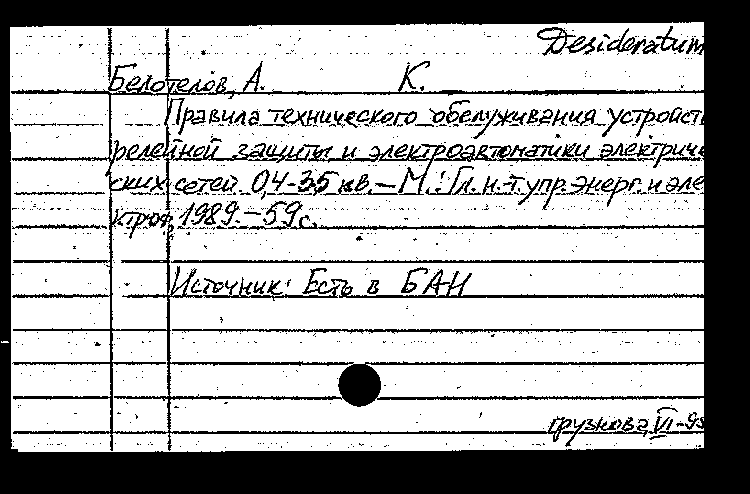 Desideratum
Белотелов, А. К.
Правила технического обслуживания устройст
релейной защиты и электроавтоматики электриче
ских сетей 0,4-35 кв. – М.: Гл. н.-т. упр. энерг. и эле
ктроф, 1989. – 59 с.
Источник: Есть в БАН
грузнова, VI-93